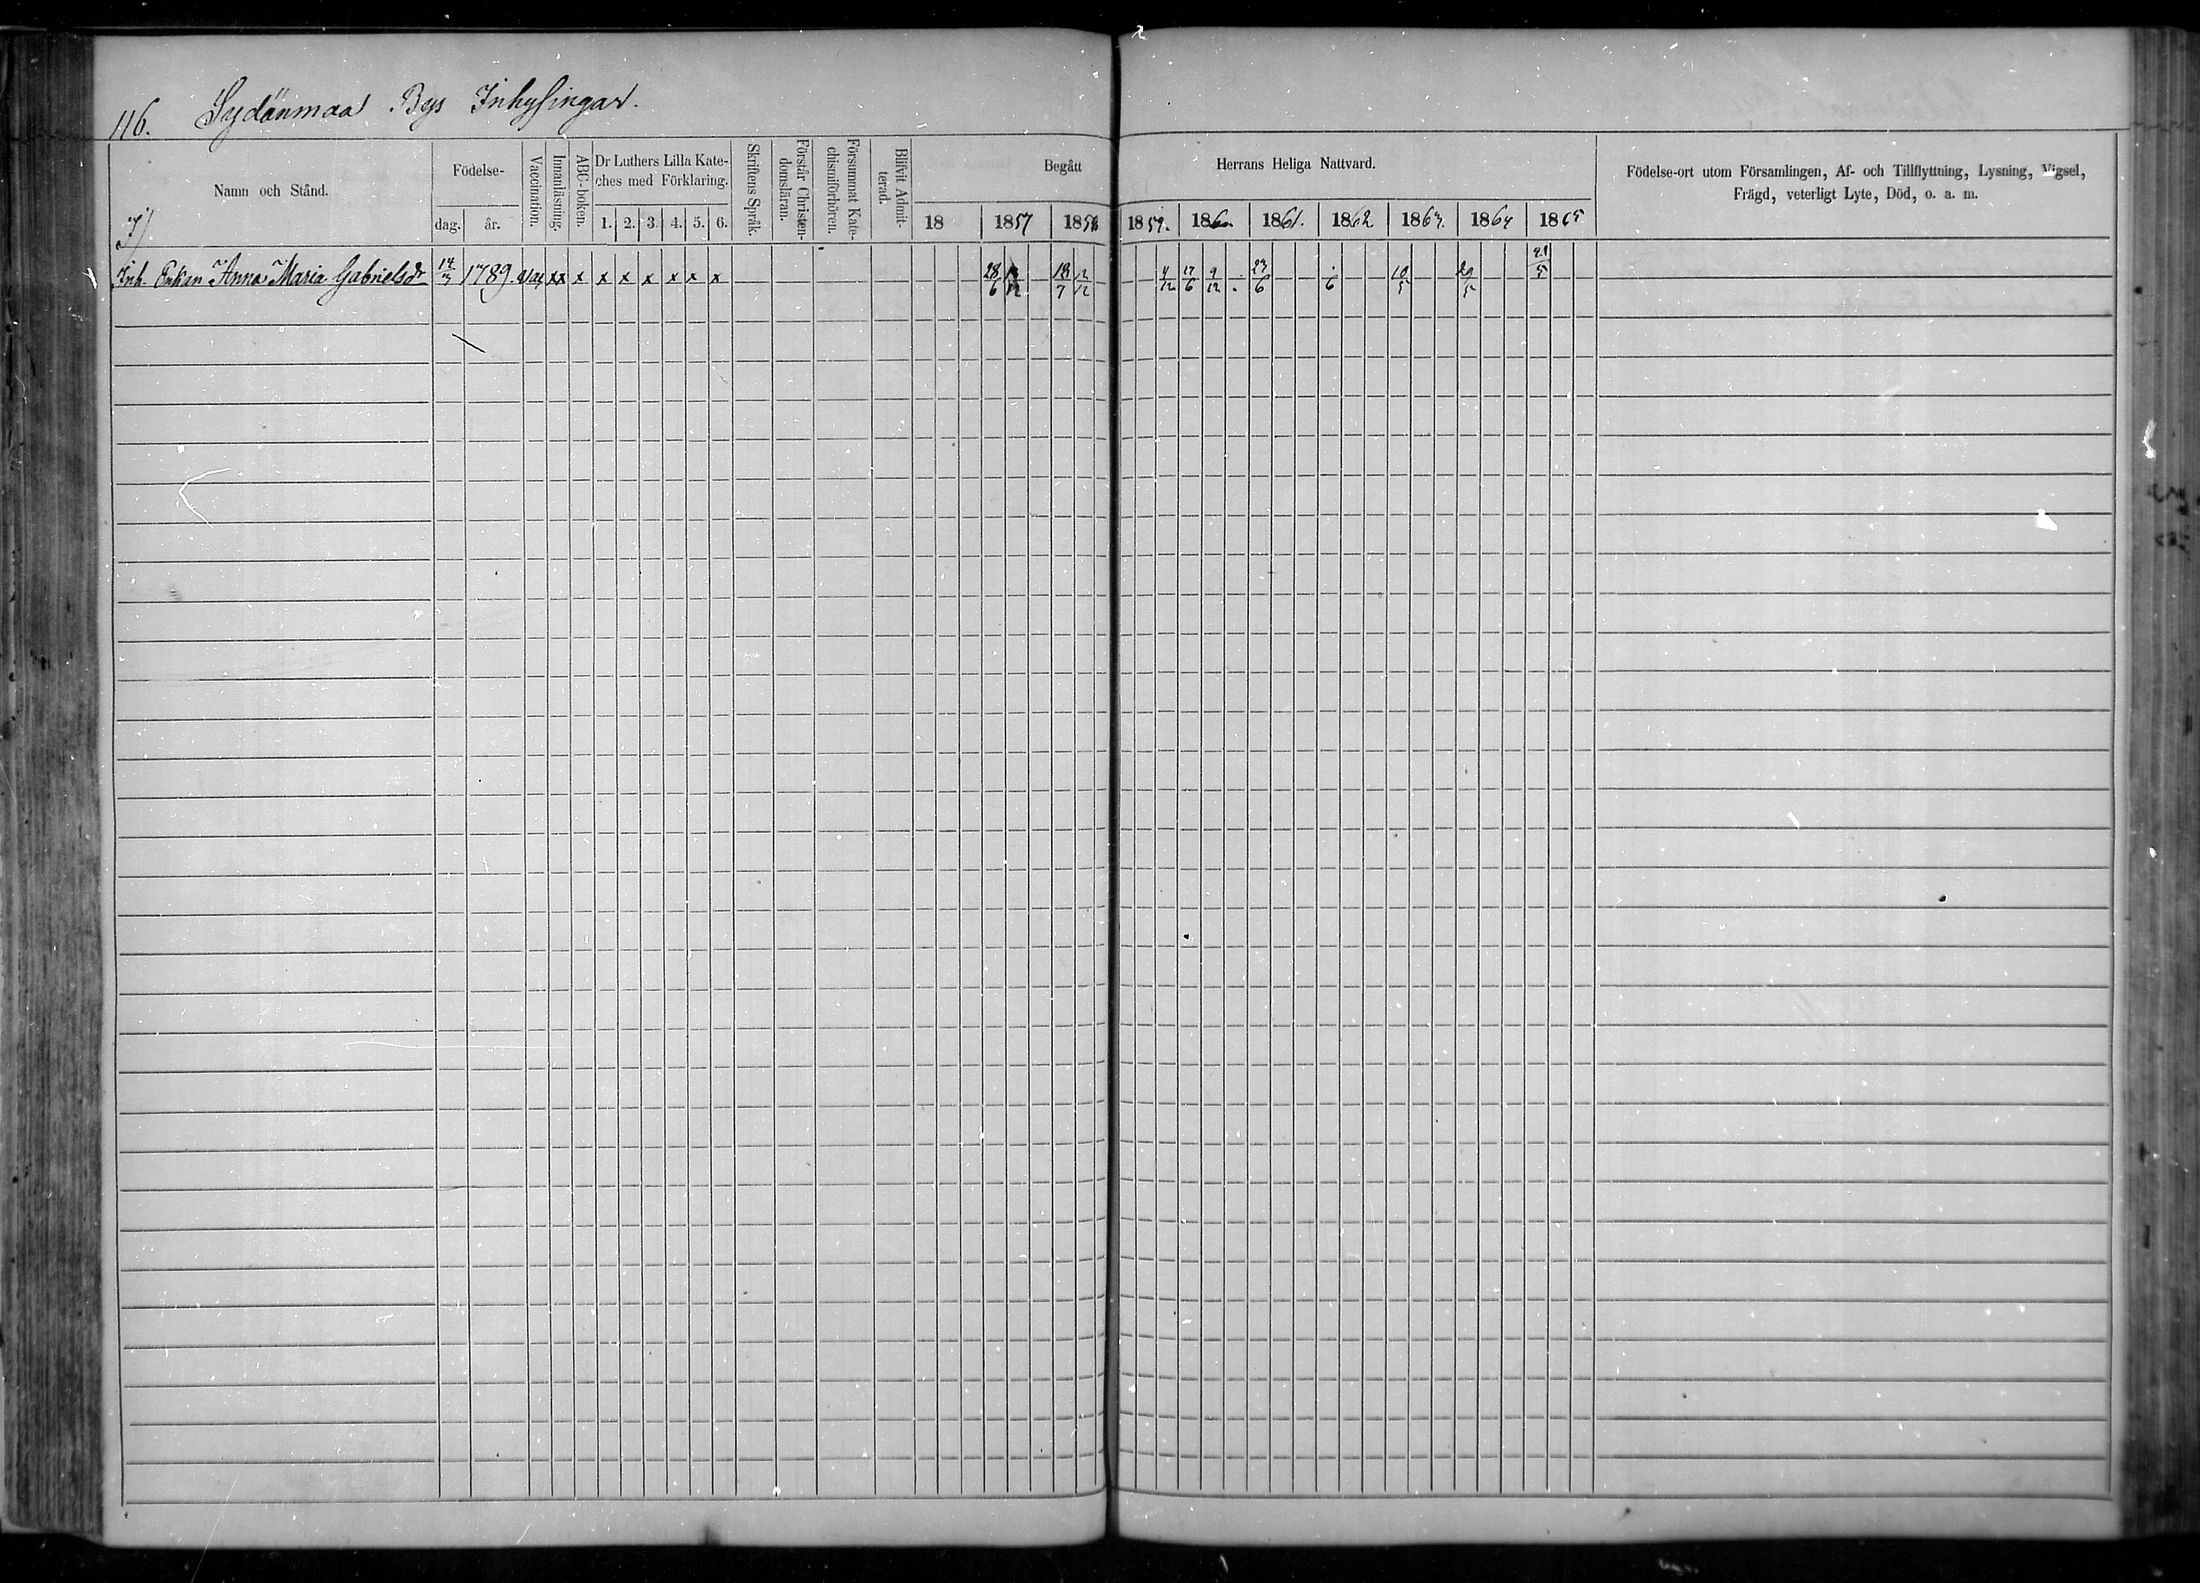 116. Sydänmaa Bys Inhysingar.
Namn och Stånd.
Födelse-
dag. år.
Vaccination.
Innanläsning.
ABC-boken.
Dr Luthers Lilla Kate-
ches med Förklaring.
1. 2. 3. 4. 5. 6.
Skriftens Språk.
Förstår Christen-
domsläran.
Försummat Kate-
chismiförhören.
Blifvit Admit-
terad.
Begått Herrans Heliga Nattvard.
18 1857 1858 1859. 1860. 1861. 1862 1863. 1864 1865
Födelse-ort utom Församlingen, Af- och Tillflyttning, Lysning, Vigsel,
Frägd, veterligt Lyte, Död, o. a. m.
Inh. Enkan Anna Maria Gabrielsdr 14/3 1789. Vac xx x x x x x x x 28/6 18/7 12/12 4/12 17/6 9/12 23/6 10/5 29/5 21/5